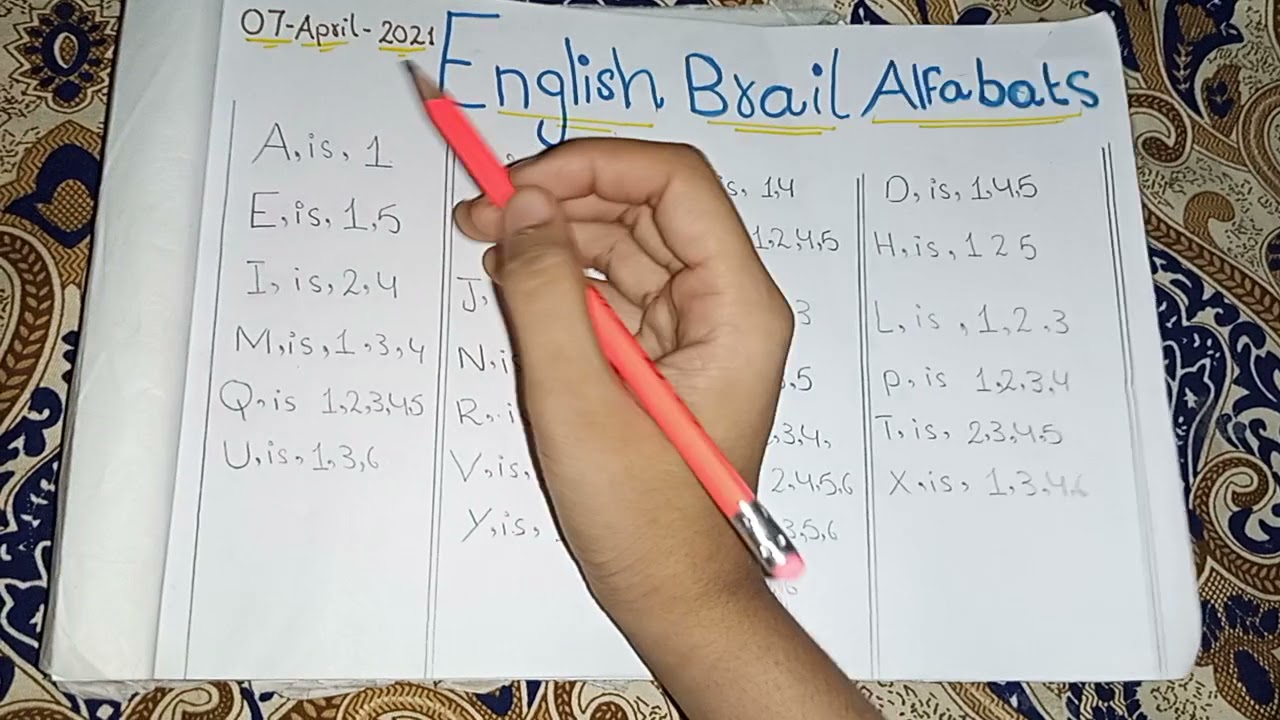 07-April-2021
English Brail Alfabats
A,is, 1
E,is, 1,5
I, is, 2,4
M,is, 1,3,4
Q,is 1,2,3,4,5
U,is, 1,3,6
J,
N,is
R,
V,is,
Y,is,
is, 1,4
1,2,4,5
3
,5
,3,4,
2,4,5,6
3,5,6
D, is, 1,4,5
H, is, 1 2 5
L, is , 1,2,3
P, is 1,2,3,4
T, is, 2,3,4,5
X, is, 1,3,4,6